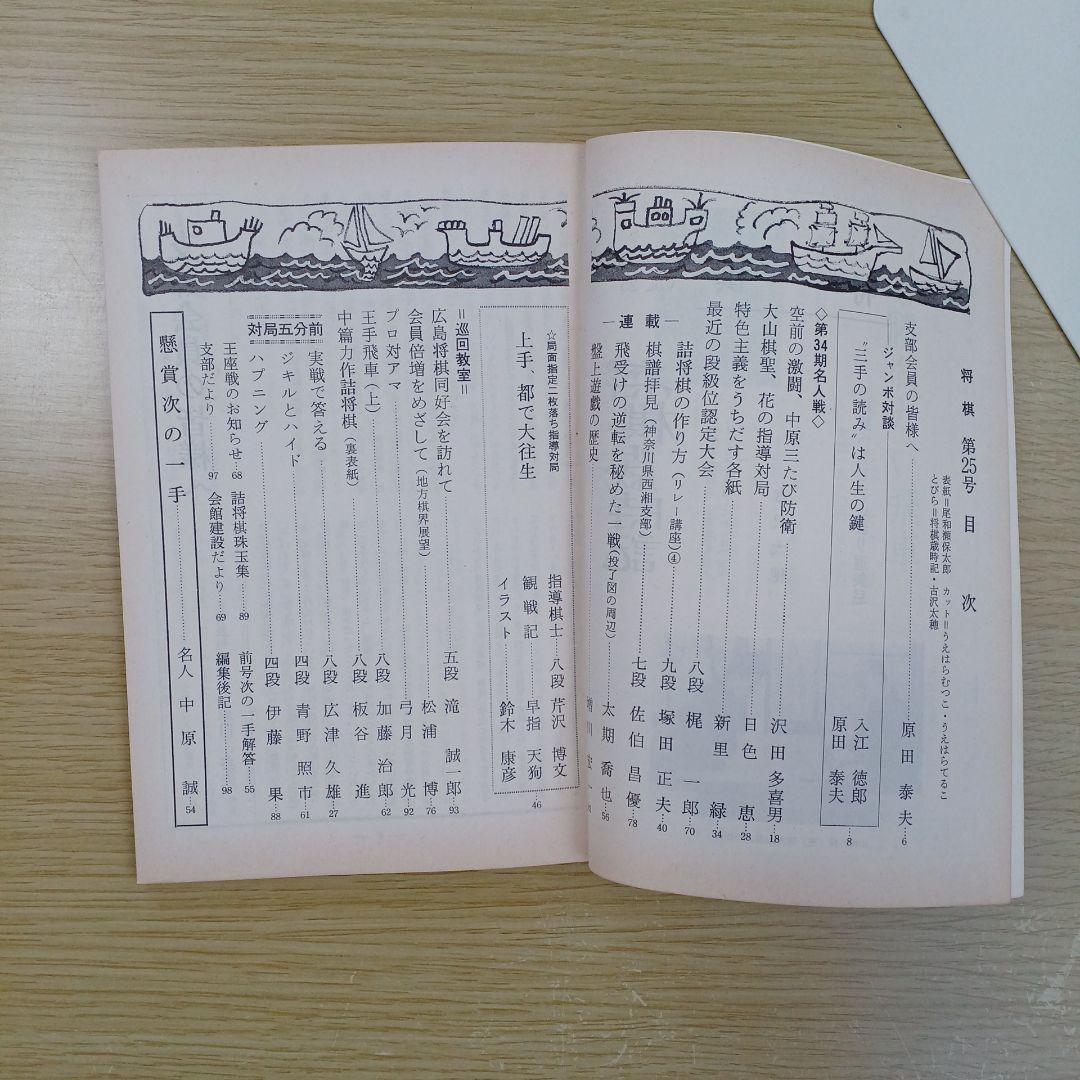 将棋 第25号 目次
表紙=尾和瀬保太郎 カット=うえはらむつこ・うえはらてるこ
とびら=将棋歳時記・古沢太穂
支部会員の皆様へ……原田泰夫…6
ジャンボ対談
〝三手の読み〟は人生の鍵
入江徳郎
原田泰夫…8
◇第34期名人戦◇
空前の激闘、中原三たび防衛……沢田多喜男…18
大山棋聖、花の指導対局……日色恵…28
特色主義をうちだす各紙……新里緑…34
最近の段級位認定大会……八段 梶一郎…70
―連載―
詰将棋の作り方(リレー講座)④……九段 塚田正夫…40
棋譜拝見(神奈川県西湘支部)……七段 佐伯昌優…78
飛受けの逆転を秘めた一戦(投了図の周辺)……太期喬也…56
盤上遊戯の歴史……増川宏一
☆局面指定二枚落ち指導対局
上手、都で大往生
指導棋士……八段 芹沢博文
観戦記……早指天狗
イラスト……鈴木康彦
…46
=巡回教室=
広島将棋同好会を訪れて……五段 滝誠一郎…93
会員倍増をめざして(地方棋界展望)……松浦博…76
プロ対アマ……弓月光…92
王手飛車(上)……八段 加藤治郎…62
中篇力作詰将棋(裏表紙)……八段 板谷進
実戦で答える……八段 広津久雄…27
対局五分前
ジキルとハイド……四段 青野照市…61
ハプニング……四段 伊藤果…88
王座戦のお知らせ…68 詰将棋珠玉集…89 前号次の一手解答…55
支部だより…97 会館建設だより…69 編集後記…98
懸賞次の一手……名人 中原誠…54